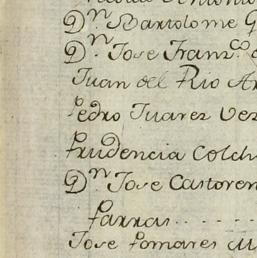 Dn. Bartolome G
Dn. Jose Franco.
Juan del Rio Ar
Pedro Juarez Vez
Prudencia Colch
Dn. Jose Castoren
Parras....
Jose Pomares M